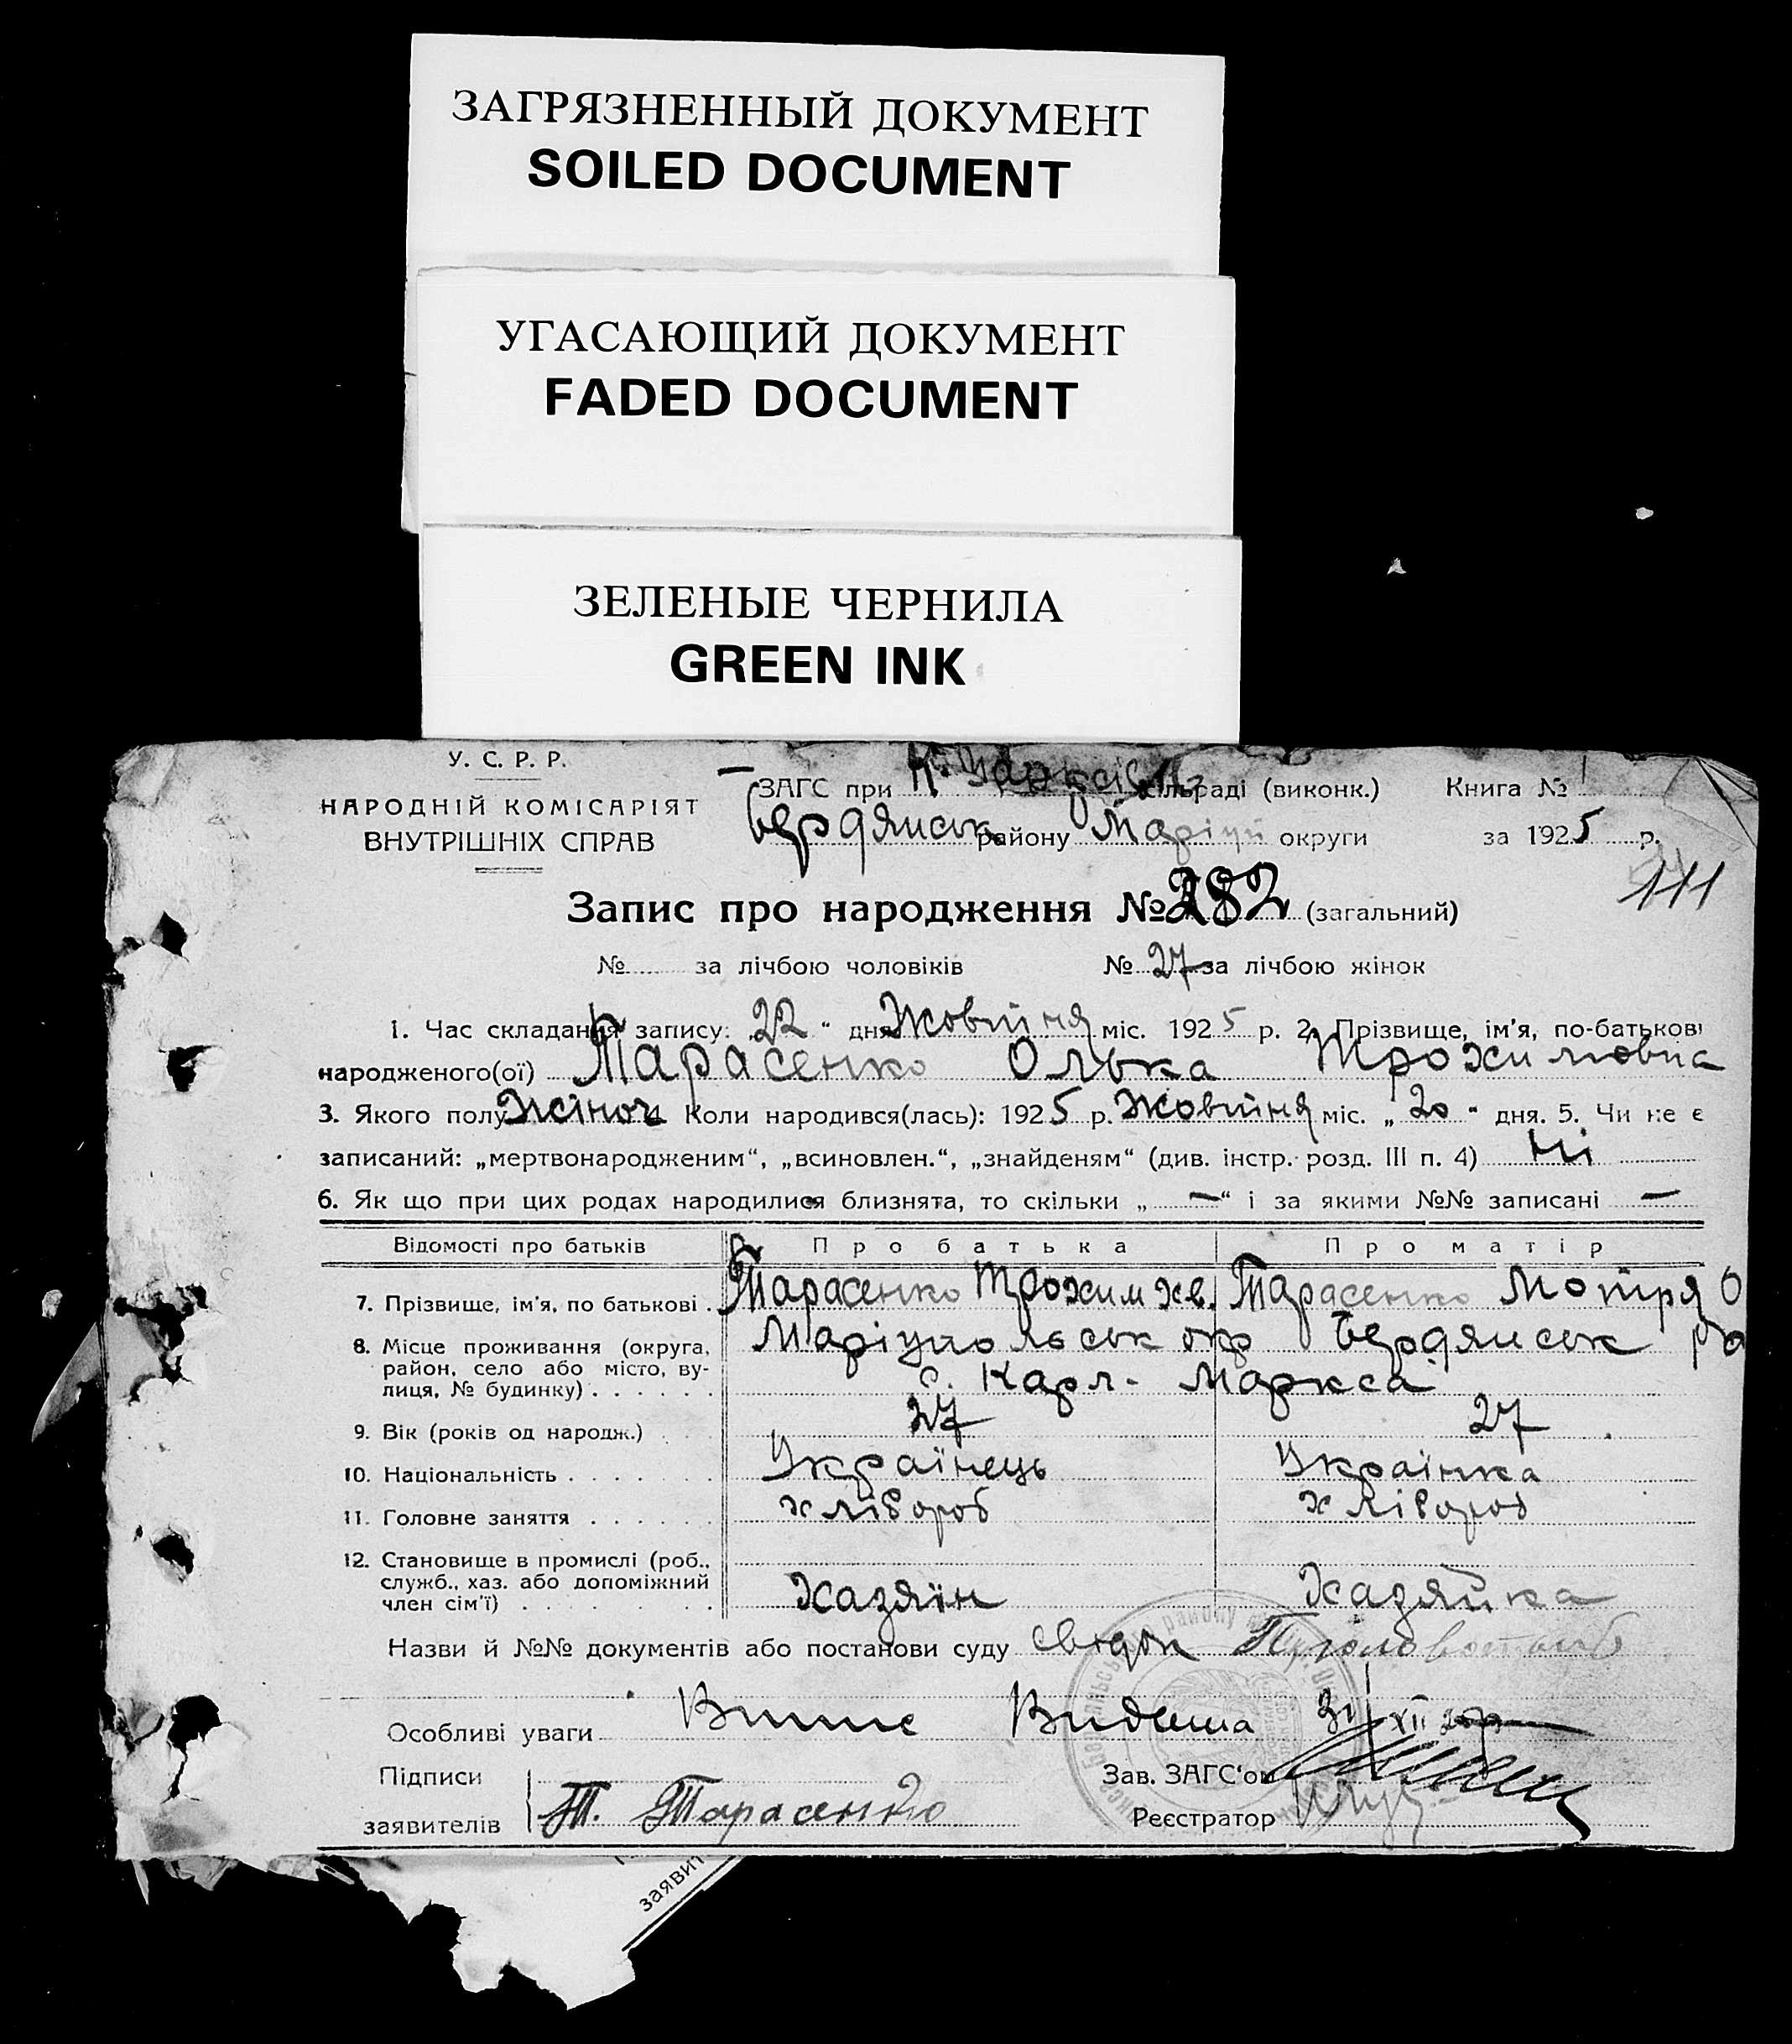 ЗАГРЯЗНЕННЫЙ ДОКУМЕНТ
SOILED DOCUMENT
УГАСАЮЩИЙ ДОКУМЕНТ
FADED DOCUMENT
ЗЕЛЕНЫЕ ЧЕРНИЛА
GREEN INK
У. С. Р. Р.
НАРОДНІЙ КОМІСАРІЯТ
ВНУТРІШНІХ СПРАВ
ЗАГС при К. Марксівск сільраді (виконк.) Книга №
Бердянськ району Маріуп округи за 1925 р.
111
Запис про народження № 282 (загальний)
№ за лічбою чоловіків № 27 за лічбою жінок
1. Час складання запису: „22“ дня Жовтня міс. 1925 р. 2. Прізвище, ім'я, по-батькові
народженого(ої) Тарасенко Олька Трохимовна
3. Якого полу Жіноч 4. Коли народився(лась): 1925 р. Жовтня міс. „20“ дня. 5. Чи не є
записаний: „мертвонародженим“, „всиновлен.“, „знайденям“ (див. інстр. розд. III п. 4) Ні
6. Як що при цих родах народилися близнята, то скільки „—“ і за якими №№ записані —
Відомості про батьків Про батька Про матір
7. Прізвище, ім'я, по батькові . Тарасенко Трохим Хв. Тарасенко Мотря О
8. Місце проживання (округа, район, село або місто, вулиця, № будинку) . . . . . . Маріупольськ окр Бердянськ р
с. Карл- Маркса
9. Вік (років од народж.) . . . 27 27
10. Національність . . . . . . . Українець Українка
11. Головне заняття . . . . . . хлівороб хлівороб
12. Становище в промислі (роб., служб., хаз. або допоміжний член сім'ї) . . . . . . . Хазяїн Хазяйка
Назви й №№ документів або постанови суду свідок
Особливі уваги Видана 31/XII
Підписи
заявителів Т. Тарасенко
Зав. ЗАГС'ом
Реєстратор
заявит